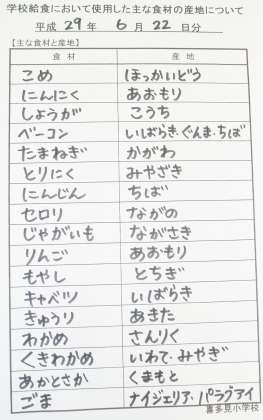 学校給食において使用した主な食材の産地について
平成 29 年 6 月 22 日分
【主な食材と産地】
食材 産地
こめ ほっかいどう
にんにく あおもり
しょうが こうち
ベーコン いばらき、ぐんま、ちば
たまねぎ かがわ
とりにく みやざき
にんじん ちば
セロリ ながの
じゃがいも ながさき
りんご あおもり
もやし とちぎ
キャベツ いばらき
きゅうり あきた
わかめ さんりく
くきわかめ いわて、みやぎ
あかとさか くまもと
ごま ナイジェリア、パラグアイ
喜多見小学校